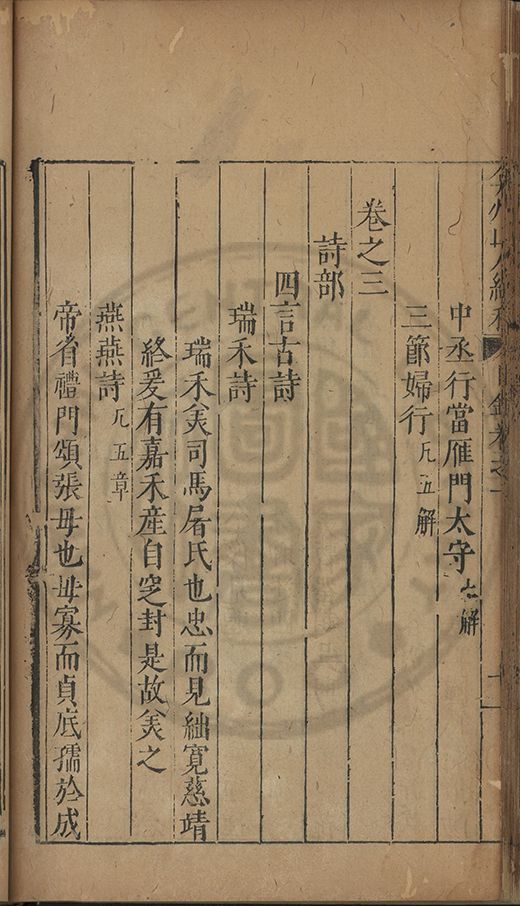 中丞行當雁門太守七解
三節婦行凡五解
卷之三
詩部
四言古詩
瑞禾詩
瑞禾美司馬屠氏也忠而見絀寬慈靖
終爰有嘉禾產自窆封是故美之
燕燕詩凡五章
帝省禮門頌張母也毋寡而貞底孺於成